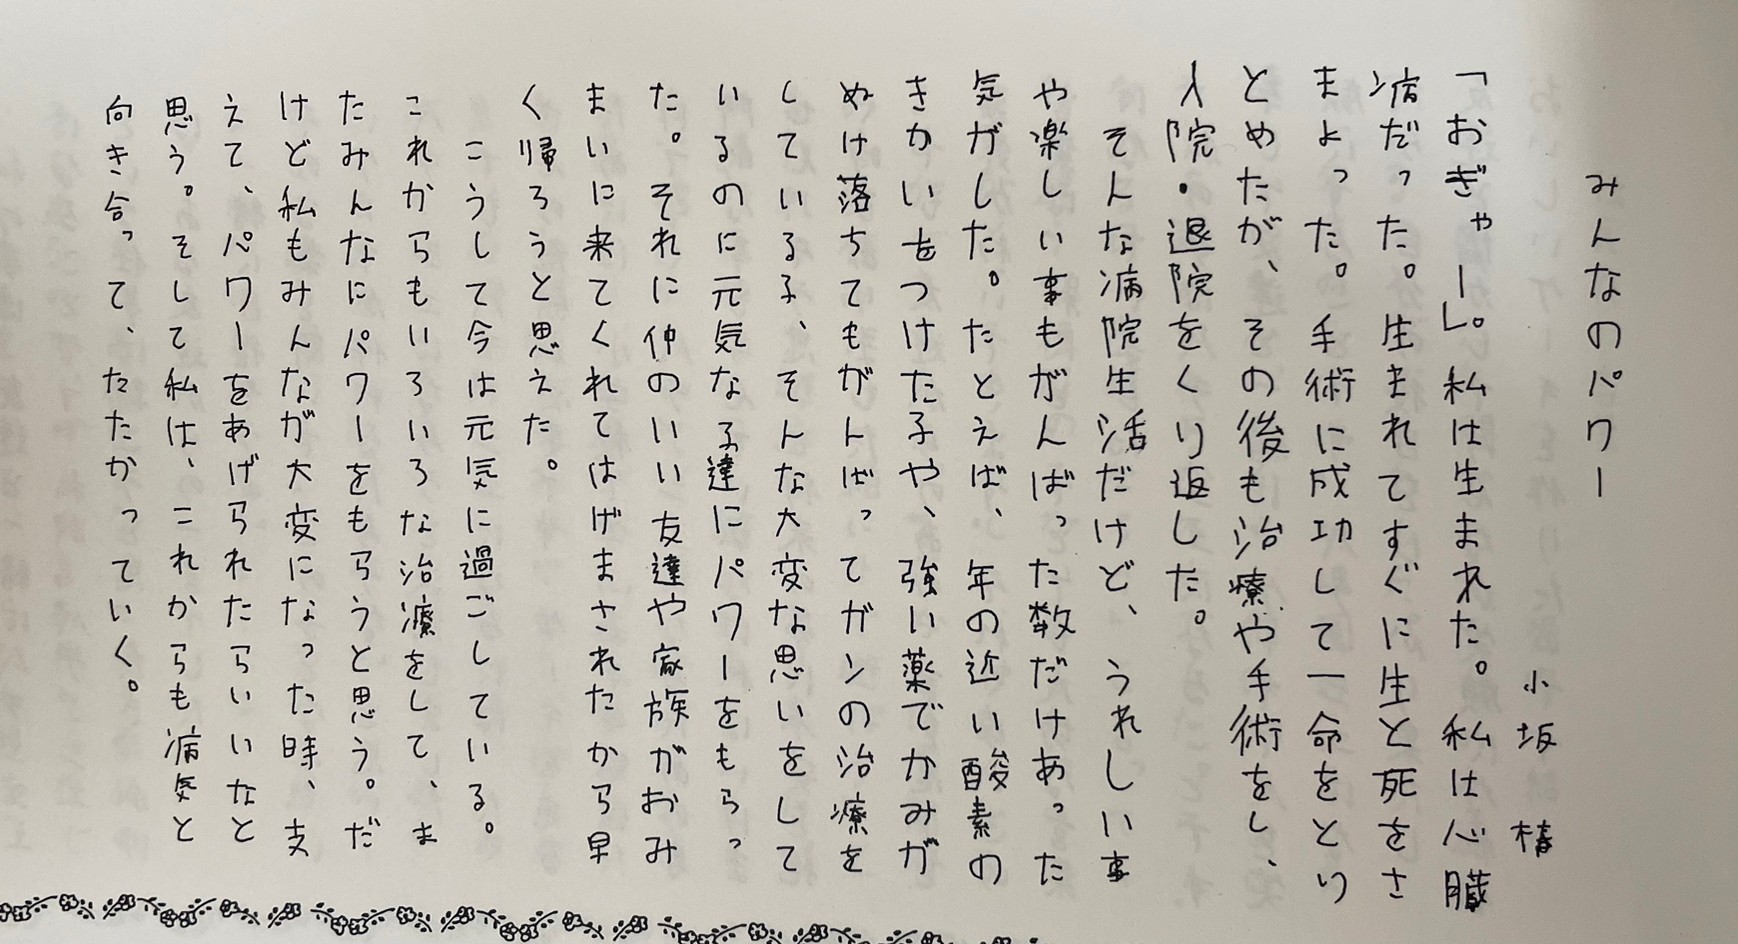 みんなのパワー
小坂 椿
「おぎゃー」。私は生まれた。私は心臓
病だった。生まれてすぐに生と死をさ
まよった。手術に成功して一命をとり
とめたが、その後も治療や手術をし、
入院・退院をくり返した。
そんな病院生活だけど、うれしい事
や楽しい事もがんばった数だけあった
気がした。たとえば、年の近い酸素の
きかいをつけた子や、強い薬でかみが
ぬけ落ちてもがんばってガンの治療を
している子、そんな大変な思いをして
いるのに元気なる達にパワーをもらっ
た。それに仲のいい友達や家族がおみ
まいに来てくれてはげまされたから早
く帰ろうと思えた。
こうして今は元気に過ごしている。
これからもいろいろな治療をして、ま
たみんなにパワーをもらうと思う。だ
けど私もみんなが大変になった時、支
えて、パワーをあげられたらいいなと
思う。そして私は、これからも病気と
向き合って、たたかっていく。